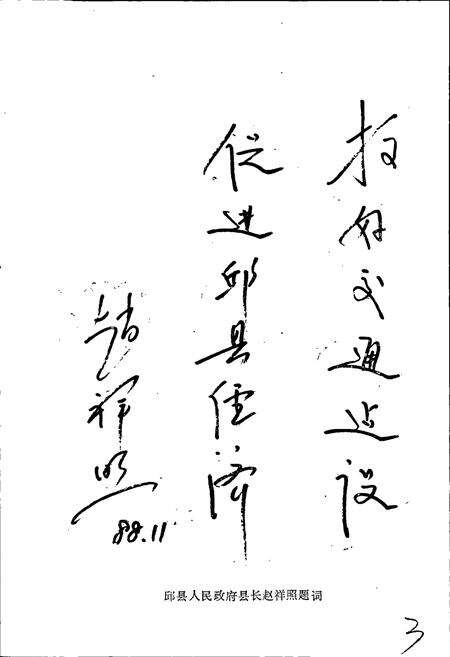 抓好交通建设
促进邱县经济
赵祥照
88.11
邱县人民政府县长赵祥照题词
3